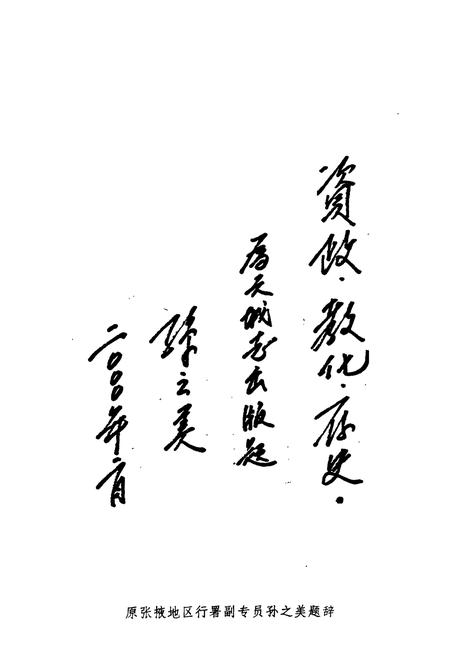 资政·教化·存史·
为天城志出版题
孙之美
二〇〇〇年二月
原张掖地区行署副专员孙之美题辞